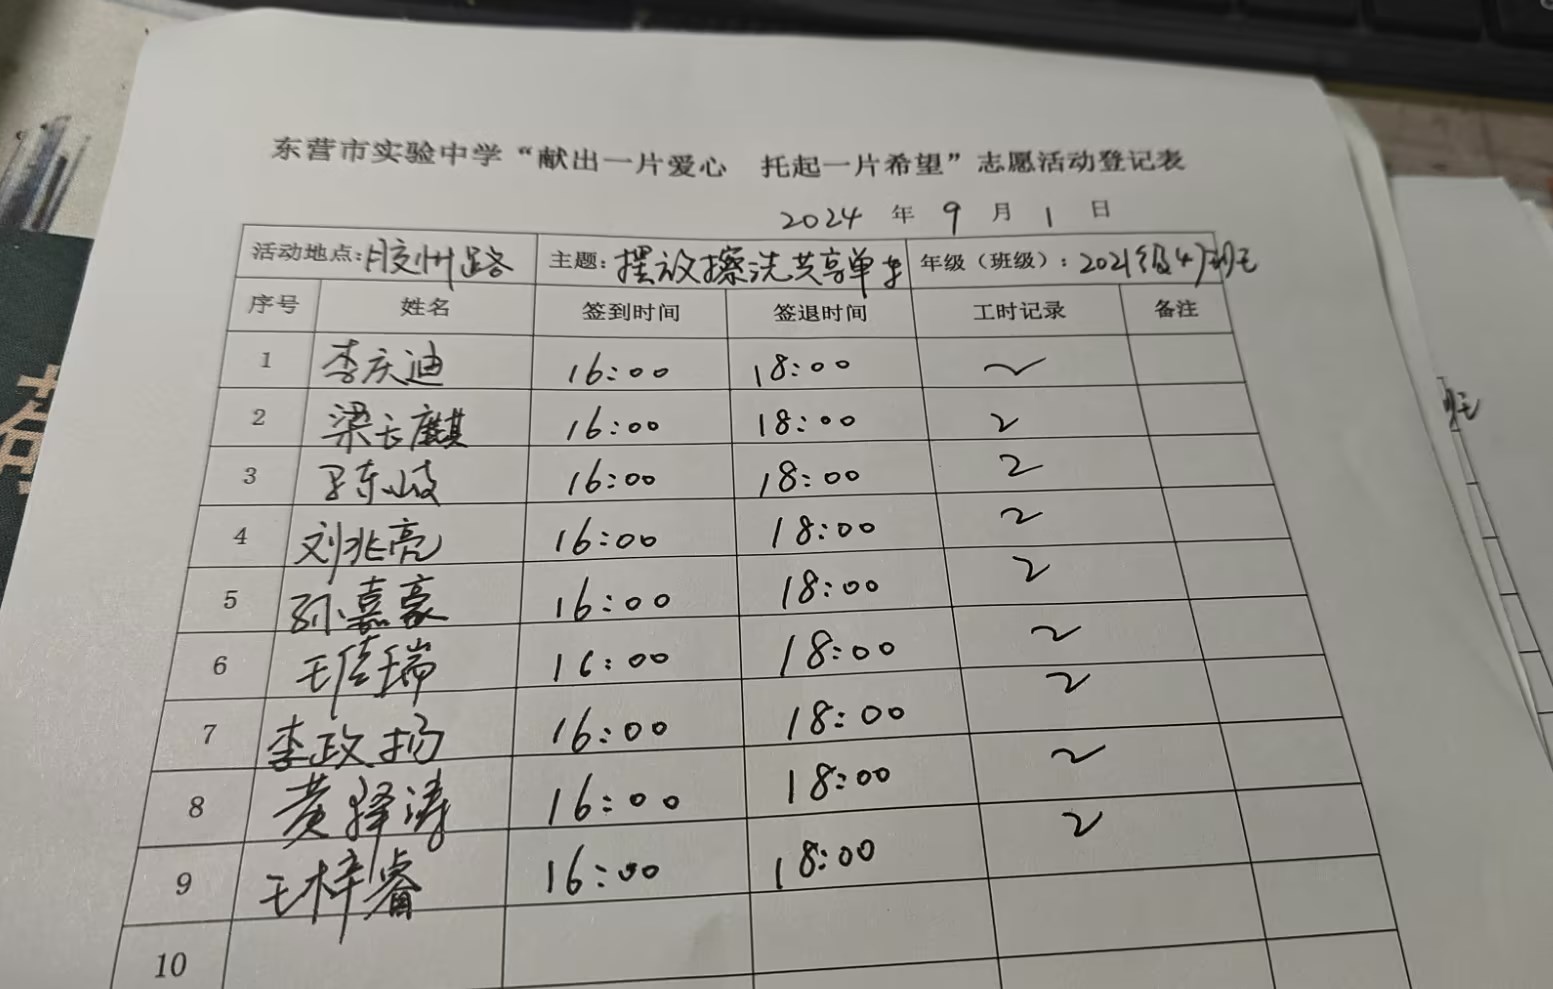 东营市实验中学“献出一片爱心 托起一片希望”志愿活动登记表
2024 年 9 月 1 日
活动地点:胶州路 主题:摆放擦洗共享单车 年级（班级）:2021级4班
序号 姓名 签到时间 签退时间 工时记录 备注
1 李庆迪 16:00 18:00 2
2 梁长麒 16:00 18:00 2
3 16:00 18:00 2
4 刘兆亮 16:00 18:00 2
5 孙嘉豪 16:00 18:00 2
6 王佳瑞 16:00 18:00 2
7 李政扬 16:00 18:00 2
8 黄译涛 16:00 18:00 2
9 王梓睿 16:00 18:00 2
10
班